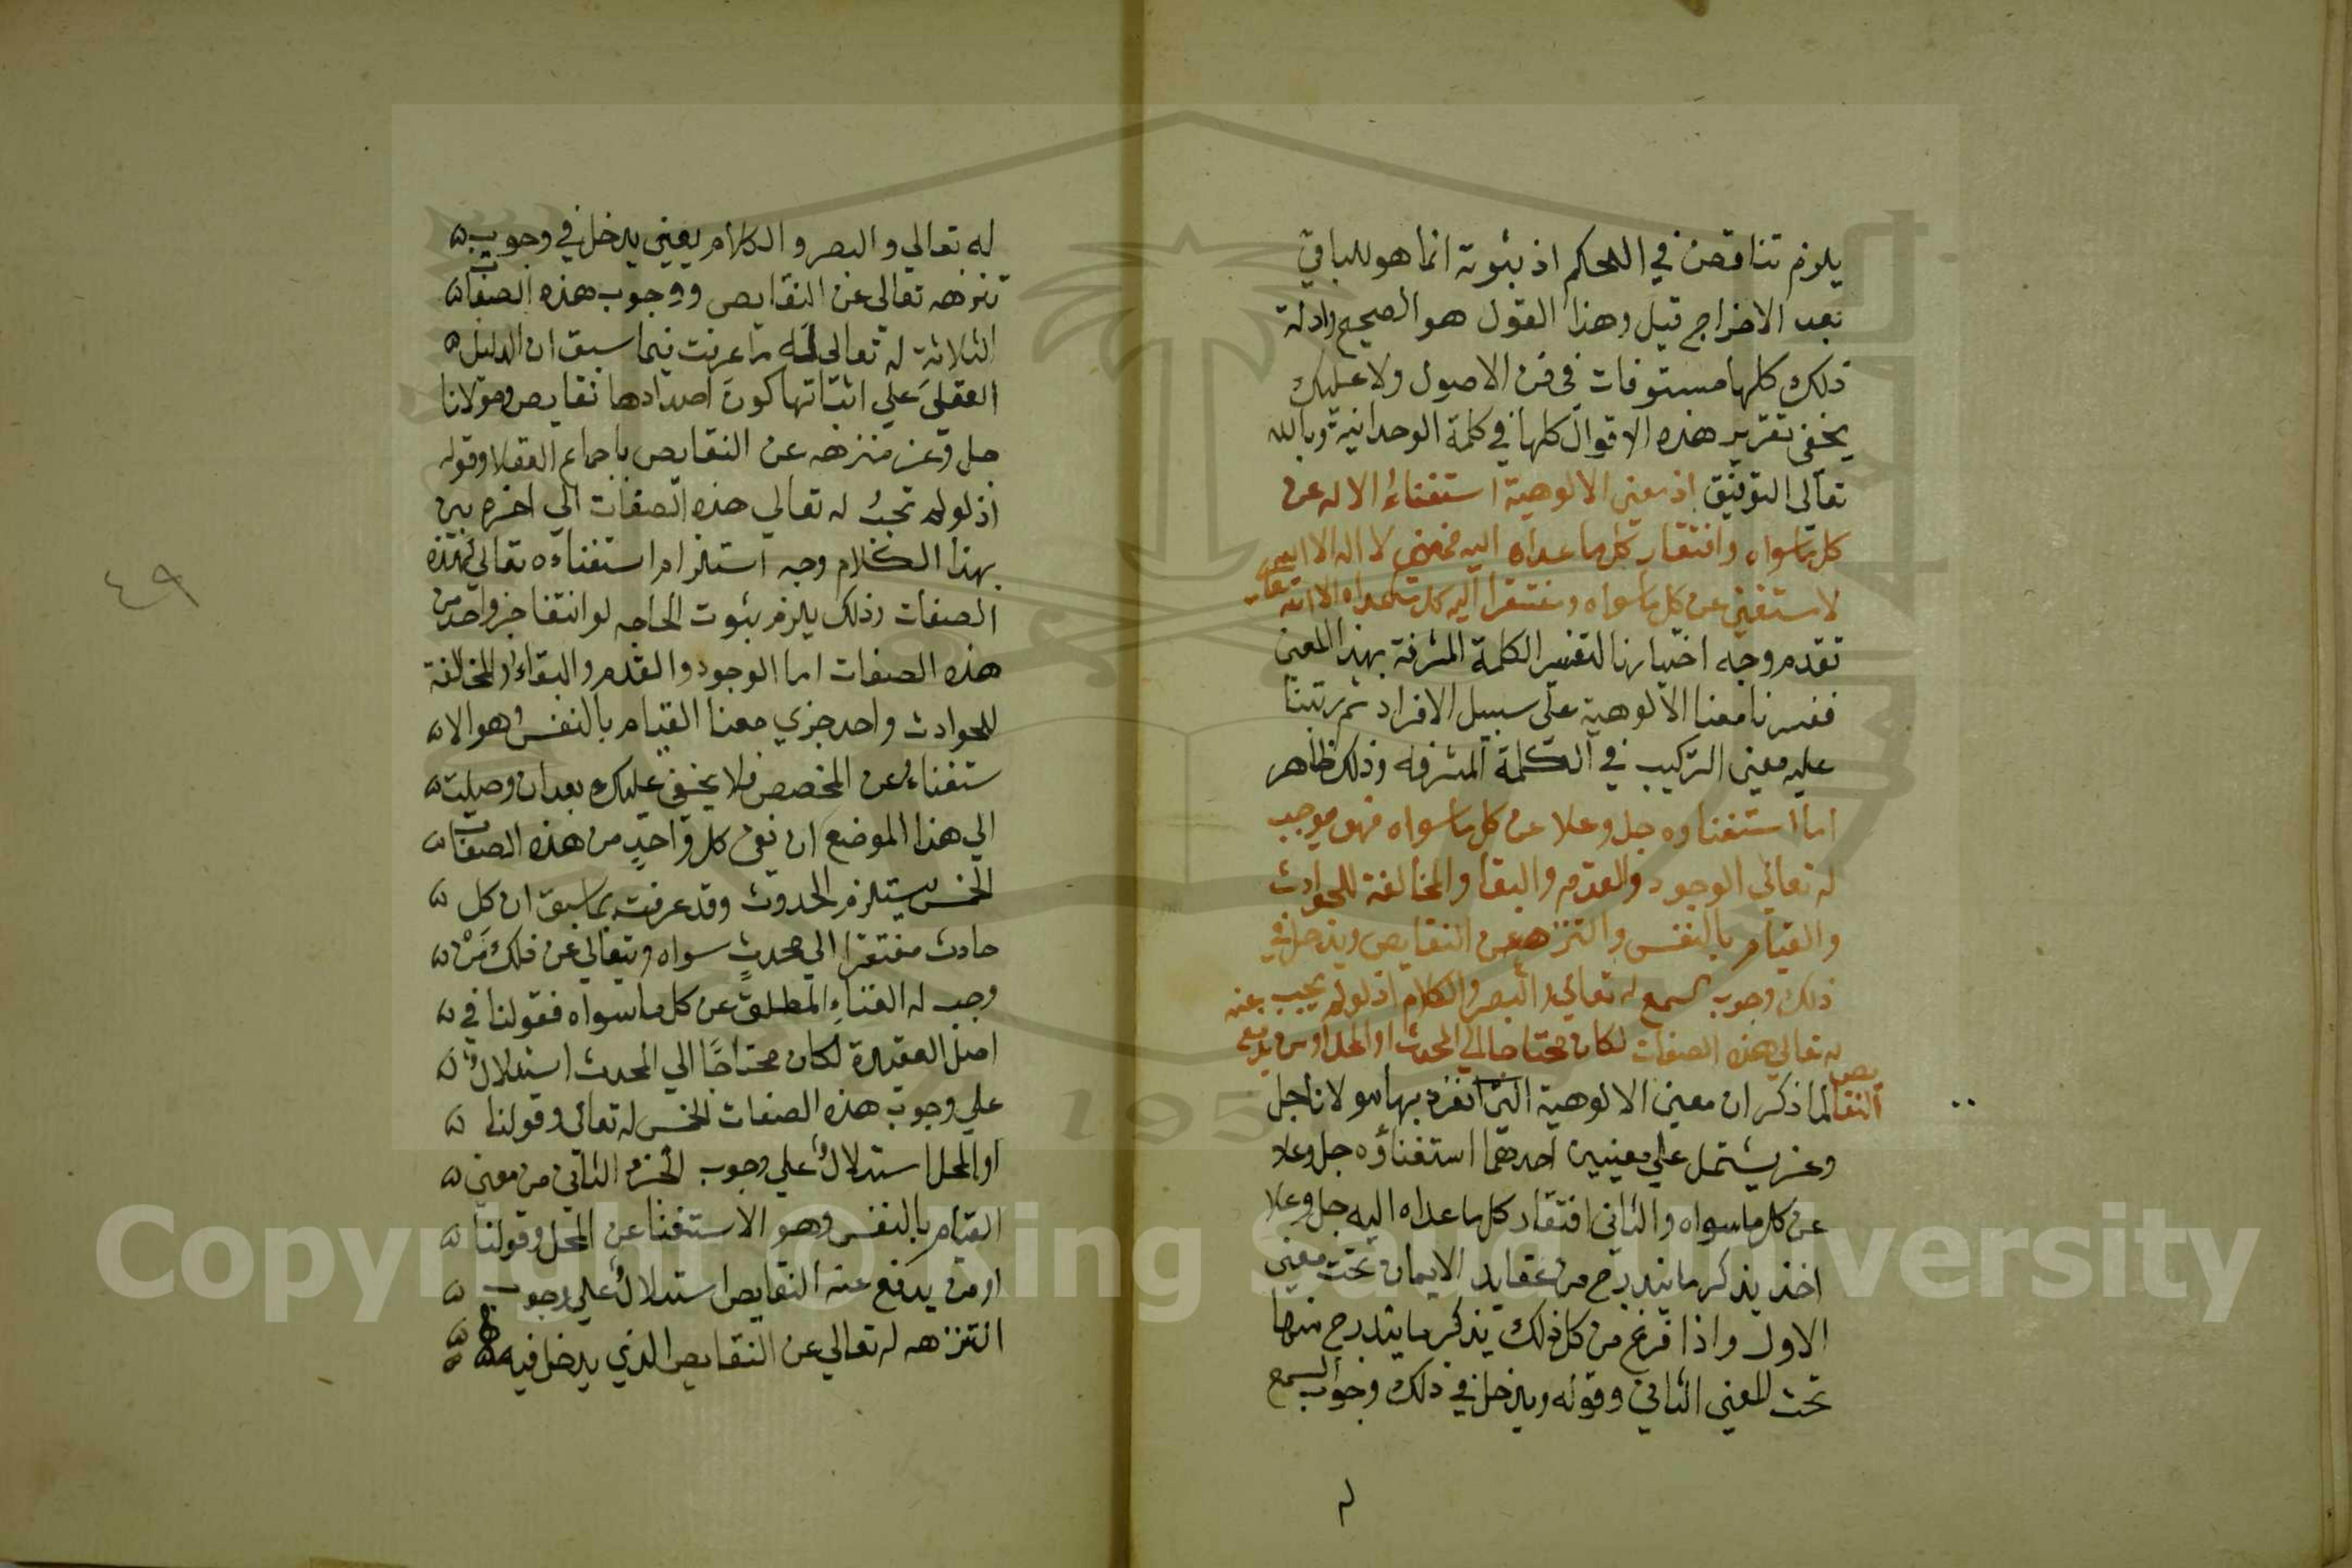 يلزم تناقض في الحكم اذ ثبوته انما هو للباقي
بعد الاخراج قيل وهذا القول هو الصحيح وادلة
ذلك كلها مستوفات في فن الاصول ولا عليك
يخفى تقرير هذه الاقوال كلها في كلمة الوحدانية وبالله
تعالى التوفيق اذ معنى الالوهية استغناء الاله عن
كل ما سواه وافتقار كل ما عداه اليه فمعنى لا اله الا الله
لا مستغني عن كل ما سواه ومفتقرا اليه كل ما عداه الا الله تعالى
تقدم وجه اختيارنا لتفسير الكلمة المشرفة بهذا المعنى
ففسرنا معنا الالوهية على سبيل الافراد ثم رتبنا
عليه معنى التركيب في الكلمة المشرفه وذلك ظاهر
اما استغناوه جل وعلا عن كل ما سواه فهو يوجب
له تعالى الوجود والقدم والبقا والمخالفة للحوادث
والقيام بالنفس والتنزه عن النقايص ويدخل في
ذلك وجوب السمع له تعالى والبصر والكلام اذ لو لم يجب
له تعالى هذه الصفات لكان محتاجا الى المحدث او المحل او من يدفع عنه
النقايص لما ذكر ان معنى الالوهية التي انفرد بها مولانا جل
وعز يشتمل على معنيين احدهما استغناؤه جل وعلا
عن كل ما سواه والثاني افتقار كل ما عداه اليه جل وعلا
اخذ يذكر ما يندرج من عقايد الايمان تحت معنى
الاول واذا فرغ من كل ذلك يذكر ما يندرج منها
تحت المعنى الثاني وقوله ويدخل في ذلك وجوب السمع
له تعالي والبصر والكلام يعني يدخل في وجوب
تنزهه تعالى عن النقايص ووجوب هذه الصفات
الثلاثة له تعالى لما عرفت فيما سبق ان الدليل
العقلي علي اثباتها كون اضدادها نقايص ومولانا
جل وعز منزهه عن النقايص باجماع العقلا وقوله
اذ لو لم تجب له تعالي هذه الصفات الي اخره بين
بهذا الكلام وجه استلزام استغناءه تعالي لهذه
الصفات وذلك يلزم ثبوت الحاجه لو انتفا جز واحد من
هذه الصفات اما الوجود والقدم والبقاء والمخالفة
للحوادث واحد جزي معنا القيام بالنفس وهو الا
ستغناء عن المخصص فلا يخفي عليك بعد ان وصلت
الي هذا الموضع ان نفي كل واحد من هذه الصفات
الخمس يستلزم الحدوث وقد عرفت بما سبق ان كل
حادث مفتقرا الي محدث سواه ويتعالي عن ذلك من
وجب له الغناء المطلق عن كل ما سواه فقولنا في
اصل العقيدة لكان محتاجا الي المحدث استدلال
علي وجوب هذه الصفات الخمس له تعالي وقولنا
او المحل استدلال علي وجوب الجزء الثاني من معني
القيام بالنفس وهو الاستغنا عن المحل وقولنا
او من يدفع عنه النقايص استدلال علي وجوب
التنزهه له تعالي عن النقايص الذي يدخل فيه
٤٩
Copyright © King Saud University
195